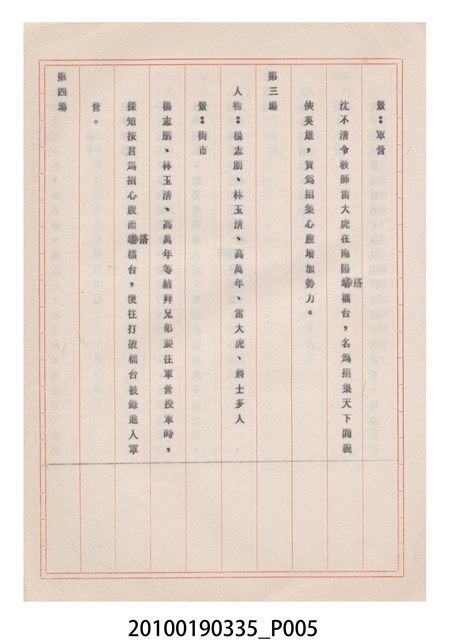 景：軍營
沈不清令教師雷大虎在南陽搭擂台，名為招集天下間義
俠英雄，實為招集心腹增加勢力。
第三場
人物：楊志朋、林玉清、高萬年、雷大虎、將士多人
景：街市
楊志朋、林玉清、高萬年等結拜兄弟要往軍營投軍時，
探知按君為招心腹而搭擂台，便往打破擂台被錄進入軍
營。
第四場
20100190335_P005